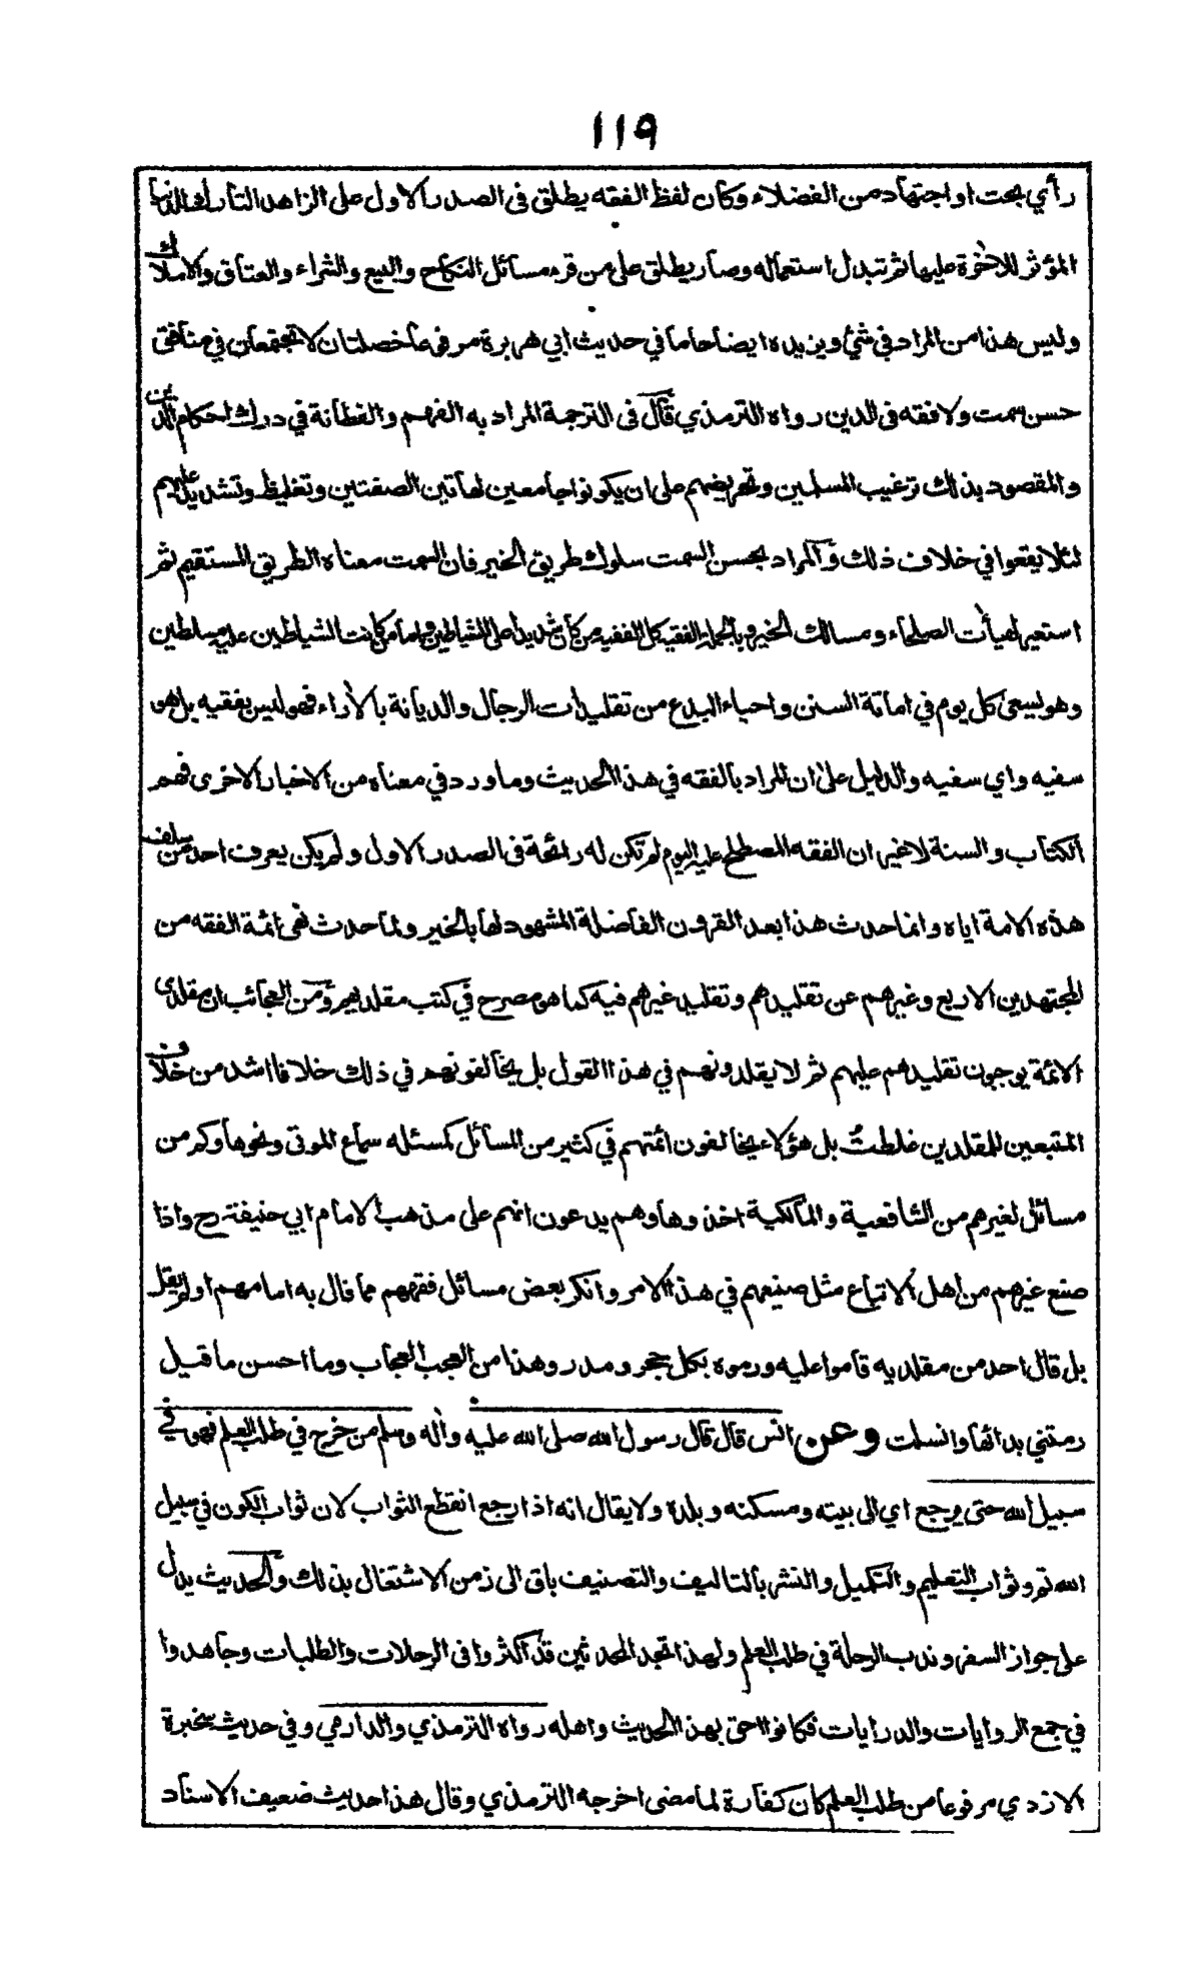 ١١٩
رأي بحت او اجتهاد من الفضلاء وكان لفظ الفقه يطلق في الصدر الاول على الزاهد التارك الدنيا
المؤثر للاخرة عليها ثم تبدل استعماله وصار يطلق على من قرء مسائل النكاح والبيع والشراء والعتاق والاملاك
وليس هذا من المراد في شئ ويزيده ايضاحا ما في حديث ابي هريرة مرفوعا خصلتان لا تجتمعان في منافق
حسن سمت ولا فقه في الدين رواه الترمذي قال في الترجمة المراد به الفهم والفطانة في درك احكام الدين
والمقصود بذلك ترغيب المسلمين وتحريضهم على ان يكونوا جامعين لهاتين الصفتين وتغليظ وتشديد عليهم
لئلا يقعوا في خلاف ذلك والمراد بحسن السمت سلوك طريق الخير فان السمت معناه الطريق المستقيم ثم
استعير لهيأت الصلحاء ومسالك الخير وبالجملة الفقيه كل الفقيه من كان شديدا على الشياطين واما من كانت الشياطين عليه مسلطين
وهو يسعى كل يوم في اماتة السنن واحياء البدع من تقليدات الرجال والديانة بالأراء فهو ليس بفقيه بل هو
سفيه واي سفيه والدليل على ان المراد بالفقه في هذا الحديث وما ورد في معناه من الاخبار الاخرى فهم
الكتاب والسنة لا غير ان الفقه المصطلح عليه اليوم لم تكن له رائحة في الصدر الاول ولم يكن يعرف احد من سلف
هذه الامة اياه وانما حدث هذا بعد القرون الفاضلة المشهود لها بالخير ولما حدث نهى ائمة الفقه من
المجتهدين الاربع وغيرهم عن تقليدهم وتقليد غيرهم فيه كما هو مصرح في كتب مقلديهم ومن العجائب ان مقلدي
الائمة يوجبون تقليدهم عليهم ثم لا يقلدونهم في هذا القول بل يخالفونهم في ذلك خلافا اشد من خلاف
المتبعين للمقلدين غلطت بل هؤلاء يخالفون ائمتهم في كثير من المسائل كمسئله سماع الموتى ونحوها وكم من
مسائل لغيرهم من الشافعية والمالكية اخذوها وهم يدعون انهم على مذهب الامام ابي حنيفة رح واذا
صنع غيرهم من اهل الاتباع مثل صنيعهم في هذا الامر وانكر بعض مسائل فقههم مما قال به امامهم او لم يقل
بل قال احد من مقلديه قاموا عليه ورموه بكل حجر ومدر وهذا من العجب العجاب وما احسن ما قيل
رمتني بدائها وانسلت وعن انس قال قال رسول الله صلى الله عليه وآله وسلم من خرج في طلب العلم فهو في
سبيل الله حتى يرجع اي الى بيته ومسكنه وبلده ولا يقال انه اذا رجع انقطع الثواب لان ثواب الكون في سبيل
الله تم وثواب التعليم والتكميل والنشر بالتاليف والتصنيف باق الى زمن الاشتغال بذلك والحديث يدل
على جواز السفر وندب الرحلة في طلب العلم ولهذا تجد المحدثين قد اكثروا في الرحلات والطلبات وجاهدوا
في جمع الروايات والدرايات فكانوا احق بهذا الحديث واهله رواه الترمذي والدارمي وفي حديث سخبرة
الازدي مرفوعا من طلب العلم كان كفارة لما مضى اخرجه الترمذي وقال هذا حديث ضعيف الاسناد